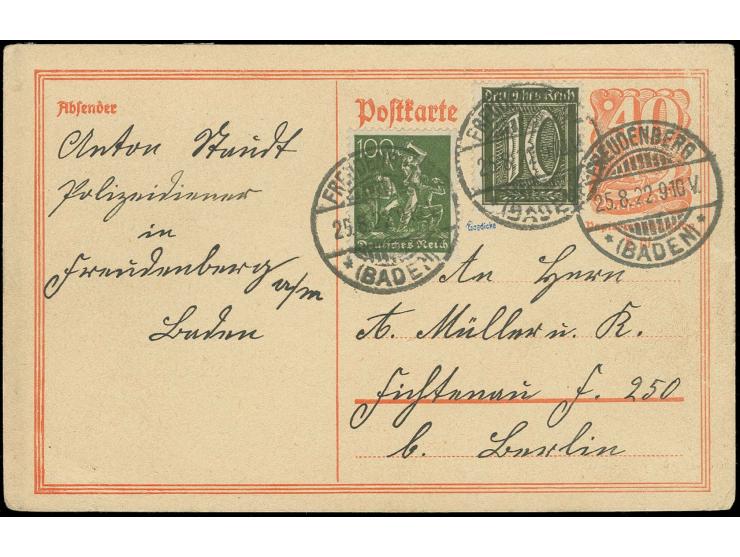 Absender
Anton Staudt
Polizeidiener
in
Freudenberg a/m
Baden
Postkarte
100
Deutsches Reich
Deutsches Reich
10
40
FREUDENBERG
25.8.22.9-10 V.
* (BADEN) *
An Herrn
A. Müller u. K.
Fichtenau F. 250
b. Berlin